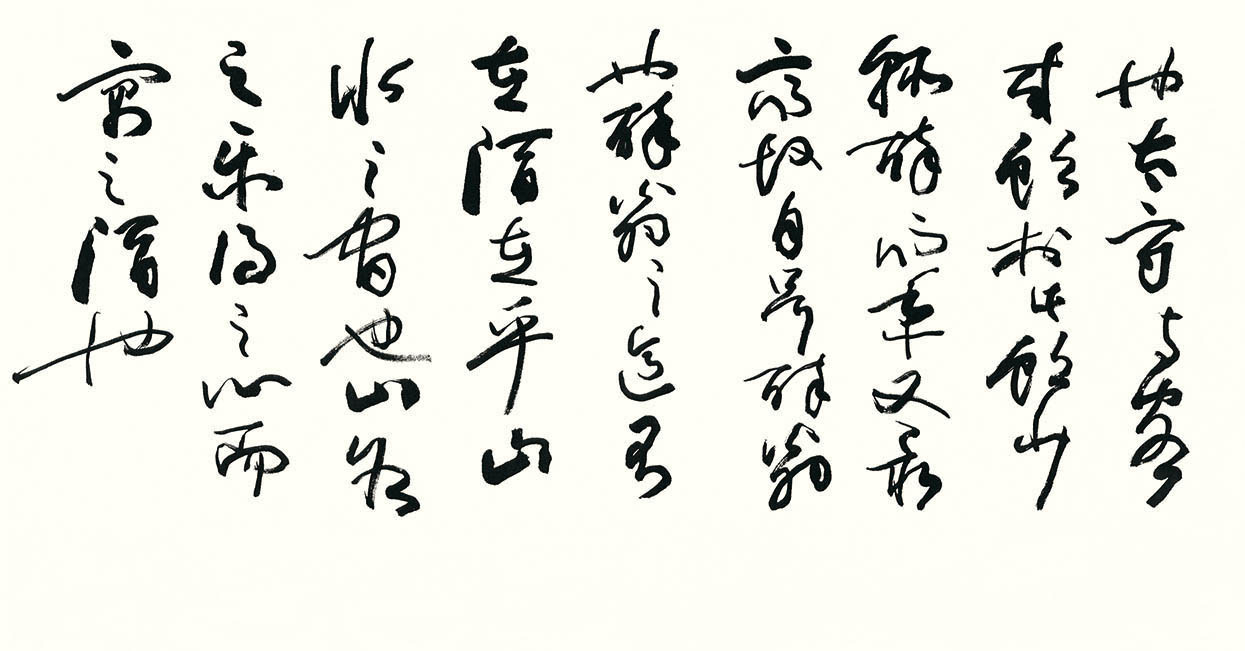 也太守与客
来饮于此饮少
辄醉而年又最
高故自号醉翁
也醉翁之意不
在酒在乎山
水之间也山水
之乐得之心而
寓之酒也